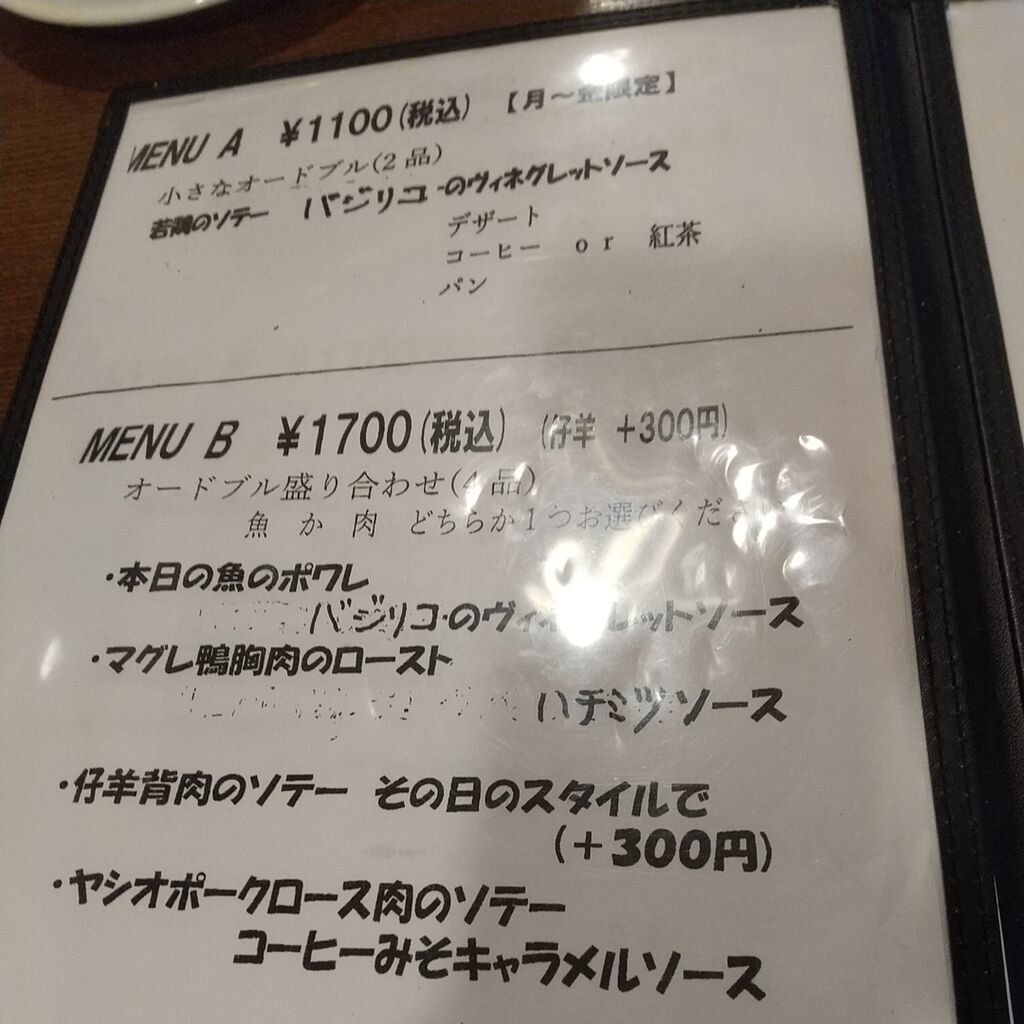 MENU A ¥1100(税込) 【月〜金限定】
小さなオードブル(2品)
若鶏のソテー バジリコのヴィネグレットソース
デザート
コーヒー or 紅茶
パン
MENU B ¥1700(税込) (仔羊 +300円)
オードブル盛り合わせ(4品)
魚 か 肉 どちらか1つお選びくださ
・本日の魚のポワレ
バジリコのヴィネグレットソース
・マグレ鴨胸肉のロースト
ハチミツソース
・仔羊背肉のソテー その日のスタイルで
(+300円)
・ヤシオポークロース肉のソテー
コーヒーみそキャラメルソース